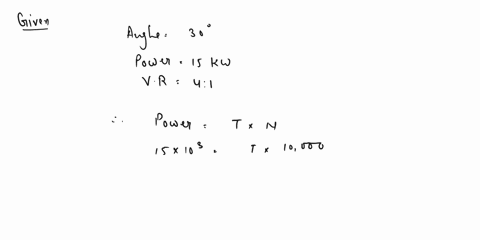 Given
Angle = 30°
Power = 15 KW
V.R = 4:1
∴ Power = T × N
15 × 10³ = T × 10,000